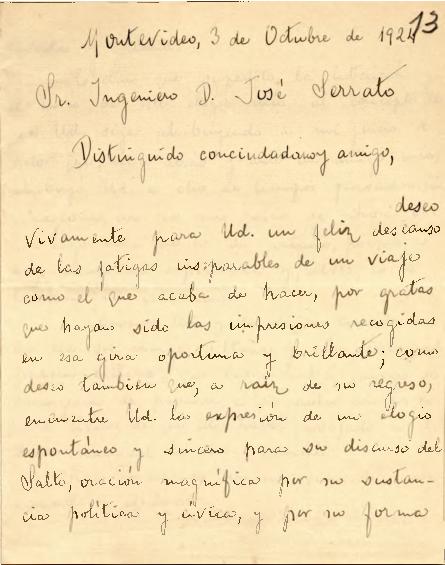 13
Montevideo, 3 de Octubre de 1924
Sr. Ingeniero D. José Serrato
Distinguido conciudadano y amigo,
deseo
vivamente para Ud. un feliz descanso
de las fatigas inseparables de un viaje
como el que acaba de hacer, por gratas
que hayan sido las impresiones recogidas
en esa gira oportuna y brillante; como
deseo tambien que, a raiz de su regreso,
encuentre Ud. la expresión de un elogio
espontáneo y sincero para su discurso del
Salto, oración magnífica por su sustan-
cia política y cívica, y por su forma